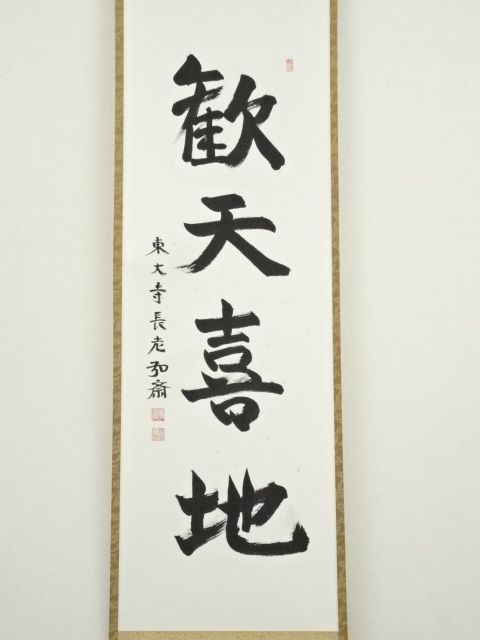 歓天喜地
東大寺長老弘斎